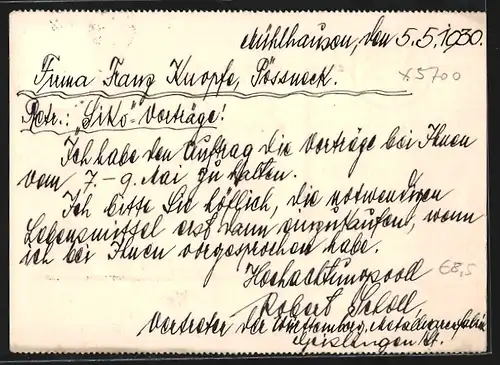 Mühlhausen, den 5.5.1930.
x5700
Firma Franz Knopfe, Pössneck.
Betr.: "Siko"-Vorträge!
Ich habe den Auftrag die Vorträge bei Ihnen
vom 7.-9. Mai zu halten.
Ich bitte Sie höflich, die notwendigen
Lebensmittel erst dann einzukaufen, wenn
ich bei Ihnen vorgesprochen habe.
Hochachtungsvoll
€8,5
Robert Scholl,
Vertreter der Württemberg. Metallwarenfabrik
Geislingen St.